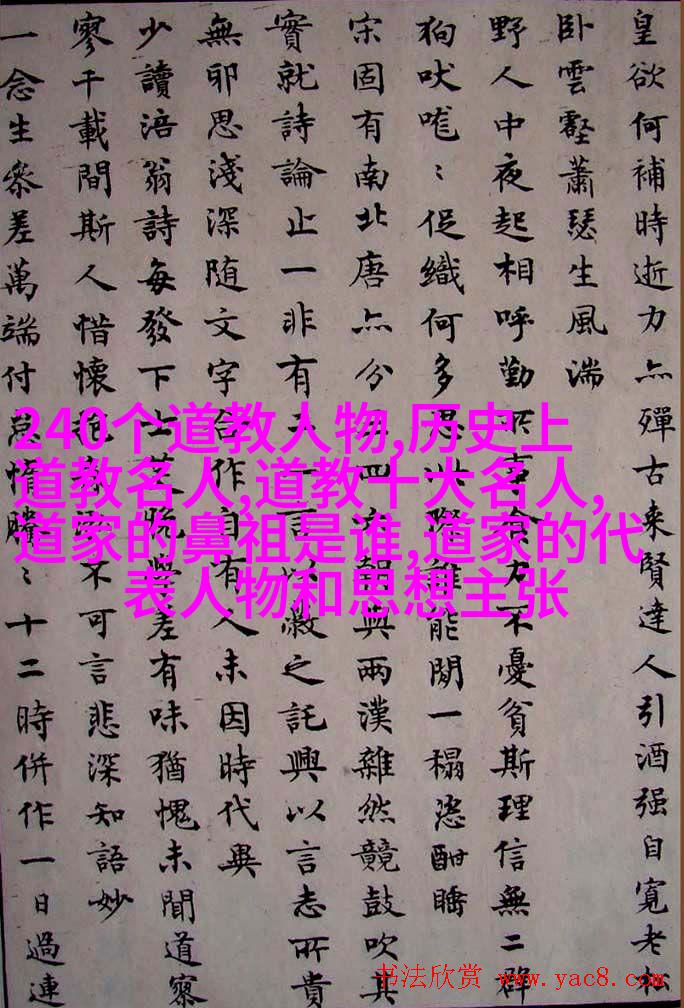 皇欲何補時逝力亦殫古来賢達人引酒强自寬老
卧雲壑蕭瑟生風湍
野人中夜起相呼勤食力不憂貧斯理信無二群
狗吠嘊〻促織何多思此際誰能閒一榻恣酣睡
宋固有南北唐亦分四朝與兩漢雜然競鼓吹其
實就詩論止一非有二一言以蔽之託興以言志所貴
無邪思淺深随文字合作自有人未因時代異
少讀涪翁詩每發下士學差有味猶愧未聞道察
寥千載間斯人惜懷抱不可言悲深知語妙
一念生參差萬端付騰〻十二時併作一日過連
240个道教人物,历史上
道教名人,道教十大名人,
道家的鼻祖是谁,道家的代
表人物和思想主张
书法欣赏 www.yac8.com